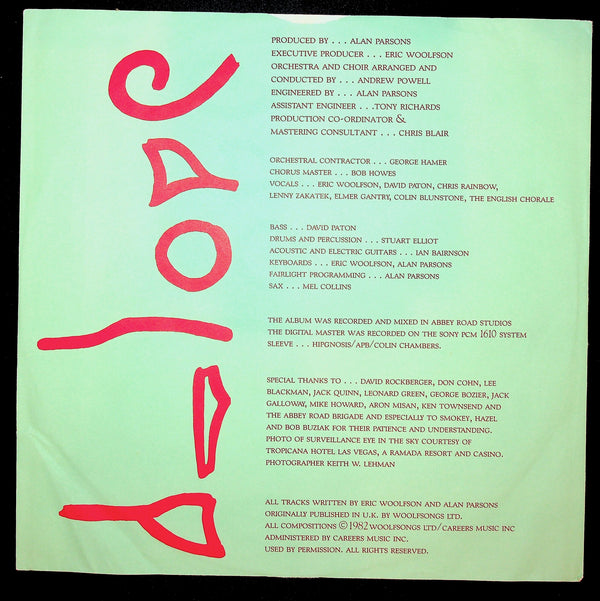 PRODUCED BY . . . ALAN PARSONS
EXECUTIVE PRODUCER . . . ERIC WOOLFSON
ORCHESTRA AND CHOIR ARRANGED AND
CONDUCTED BY . . . ANDREW POWELL
ENGINEERED BY . . . ALAN PARSONS
ASSISTANT ENGINEER . . .TONY RICHARDS
PRODUCTION CO-ORDINATOR &
MASTERING CONSULTANT . . . CHRIS BLAIR
ORCHESTRAL CONTRACTOR . . . GEORGE HAMER
CHORUS MASTER . . . BOB HOWES
VOCALS . . . ERIC WOOLFSON, DAVID PATON, CHRIS RAINBOW,
LENNY ZAKATEK, ELMER GANTRY, COLIN BLUNSTONE, THE ENGLISH CHORALE
BASS . . . DAVID PATON
DRUMS AND PERCUSSION . . . STUART ELLIOT
ACOUSTIC AND ELECTRIC GUITARS . . . IAN BAIRNSON
KEYBOARDS . . . ERIC WOOLFSON, ALAN PARSONS
FAIRLIGHT PROGRAMMING . . . ALAN PARSONS
SAX . . . MEL COLLINS
THE ALBUM WAS RECORDED AND MIXED IN ABBEY ROAD STUDIOS
THE DIGITAL MASTER WAS RECORDED ON THE SONY PCM 1610 SYSTEM
SLEEVE . . . HIPGNOSIS/APB/COLIN CHAMBERS.
SPECIAL THANKS TO . . . DAVID ROCKBERGER, DON COHN, LEE
BLACKMAN, JACK QUINN, LEONARD GREEN, GEORGE BOZIER, JACK
GALLOWAY, MIKE HOWARD, ARON MISAN, KEN TOWNSEND AND
THE ABBEY ROAD BRIGADE AND ESPECIALLY TO SMOKEY, HAZEL
AND BOB BUZIAK FOR THEIR PATIENCE AND UNDERSTANDING.
PHOTO OF SURVEILLANCE EYE IN THE SKY COURTESY OF
TROPICANA HOTEL LAS VEGAS, A RAMADA RESORT AND CASINO.
PHOTOGRAPHER KEITH W. LEHMAN
ALL TRACKS WRITTEN BY ERIC WOOLFSON AND ALAN PARSONS
ORIGINALLY PUBLISHED IN U.K. BY WOOLFSONGS LTD.
ALL COMPOSITIONS © 1982 WOOLFSONGS LTD/CAREERS MUSIC INC
ADMINISTERED BY CAREERS MUSIC INC.
USED BY PERMISSION. ALL RIGHTS RESERVED.